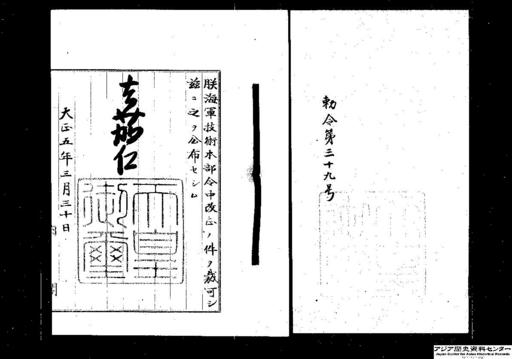 勅令第三十九号
朕海軍技術本部令中改正ノ件ヲ裁可シ
茲ニ之ヲ公布セシム
嘉仁
天皇御璽
大正五年三月三十日
アジア歴史資料センター
Japan Center for Asian Historical Records